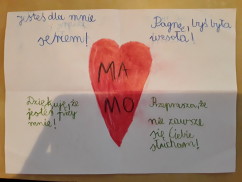 jesteś dla mnie
sercem!
Pragnę, byś była
wesoła!
MA
MO
Dziękuję, że
jesteś przy
mnie!
Przepraszam, że
nie zawsze
się Ciebie
słucham!